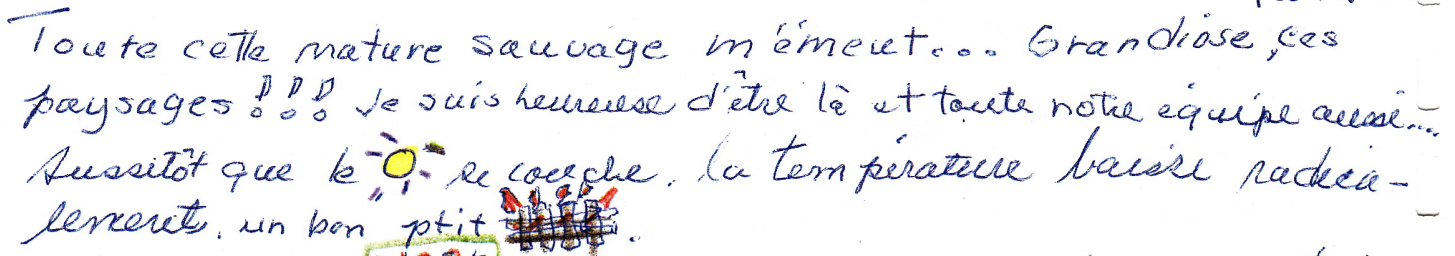 Toute cette nature sauvage m'émeut... Grandiose, ces
paysages!!! Je suis heureuse d'être là et toute notre équipe aussi....
Aussitôt que le se couche, la température baisse radica-
lement, un bon ptit .